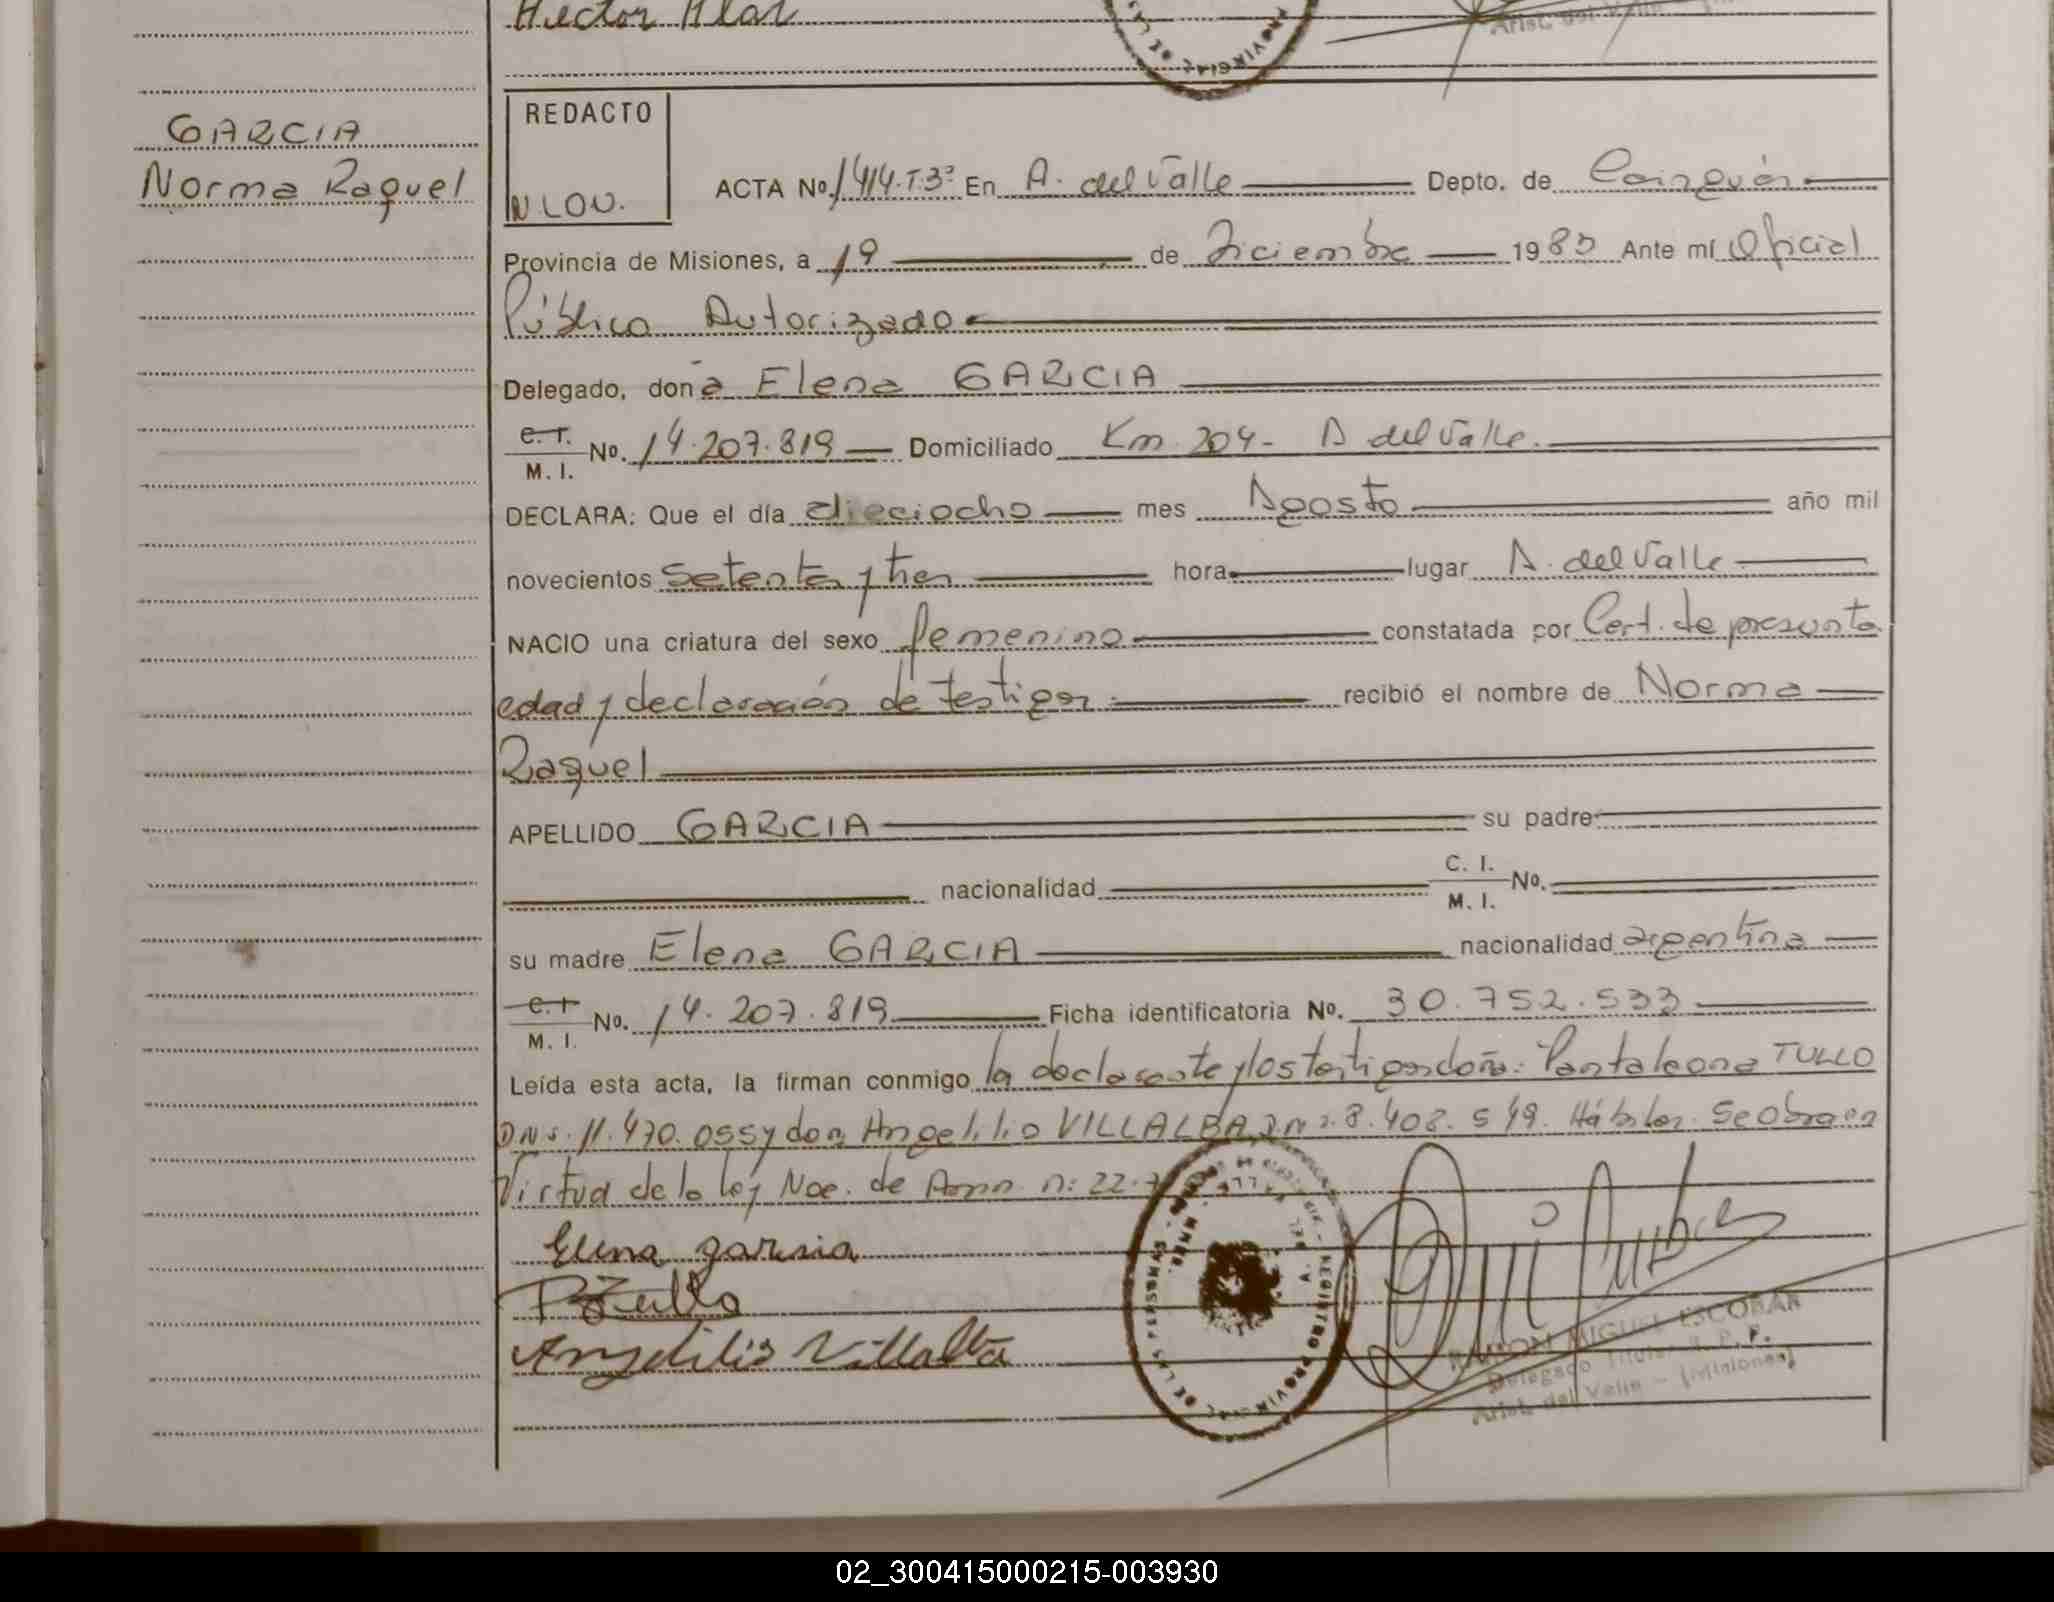 Hector Alar
Arist. del Valle
GARCIA
Norma Raquel
REDACTO
N LOV.
ACTA No. 1414.T.3º En A. del Valle Depto. de Cainguás
Provincia de Misiones, a 19 de Diciembre 1983 Ante mí Oficial
Público Autorizado
Delegado, donã Elena GARCIA
C. I. / M. I. No. 14.207.819 Domiciliado Km. 204- A del Valle.
DECLARA: Que el día dieciocho mes Agosto año mil
novecientos setenta y tres hora lugar A. del Valle
NACIO una criatura del sexo femenino constatada por Cert. de presunta
edad y declaración de testigos. recibió el nombre de Norma
Raquel
APELLIDO GARCIA su padre
nacionalidad C. I. / M. I. No.
su madre Elena GARCIA nacionalidad argentina
C. I. / M. I. No. 14.207.819 Ficha identificatoria No. 30.752.533
Leída esta acta, la firman conmigo la declarante y los testigos doña: Pantaleona TULLO
DNI. 11.470.055 y don Angelilio VILLALBA 8.408.549. Hábiles. Se obra en
Virtud de la ley Nac. de Amn. n: 22.
Elena garsia
P Tullo
Angelilio Villalba
REGISTRO PROVINCIAL DE LAS PERSONAS
RAMON MIGUEL ESCOBAR
Delegado Titular R. P. P.
Arist. del Valle - (Misiones)
02_300415000215-003930